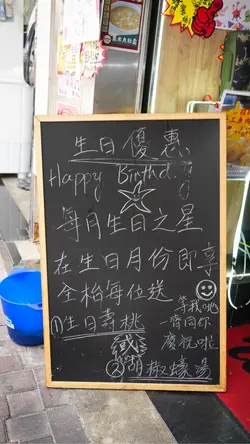 生日優惠
Happy Birthd
每月生日之星
在生日月份即享
全枱每位送
①生日壽桃
等我哋
一齊同你
慶祝啦
或
②胡椒蠔湯